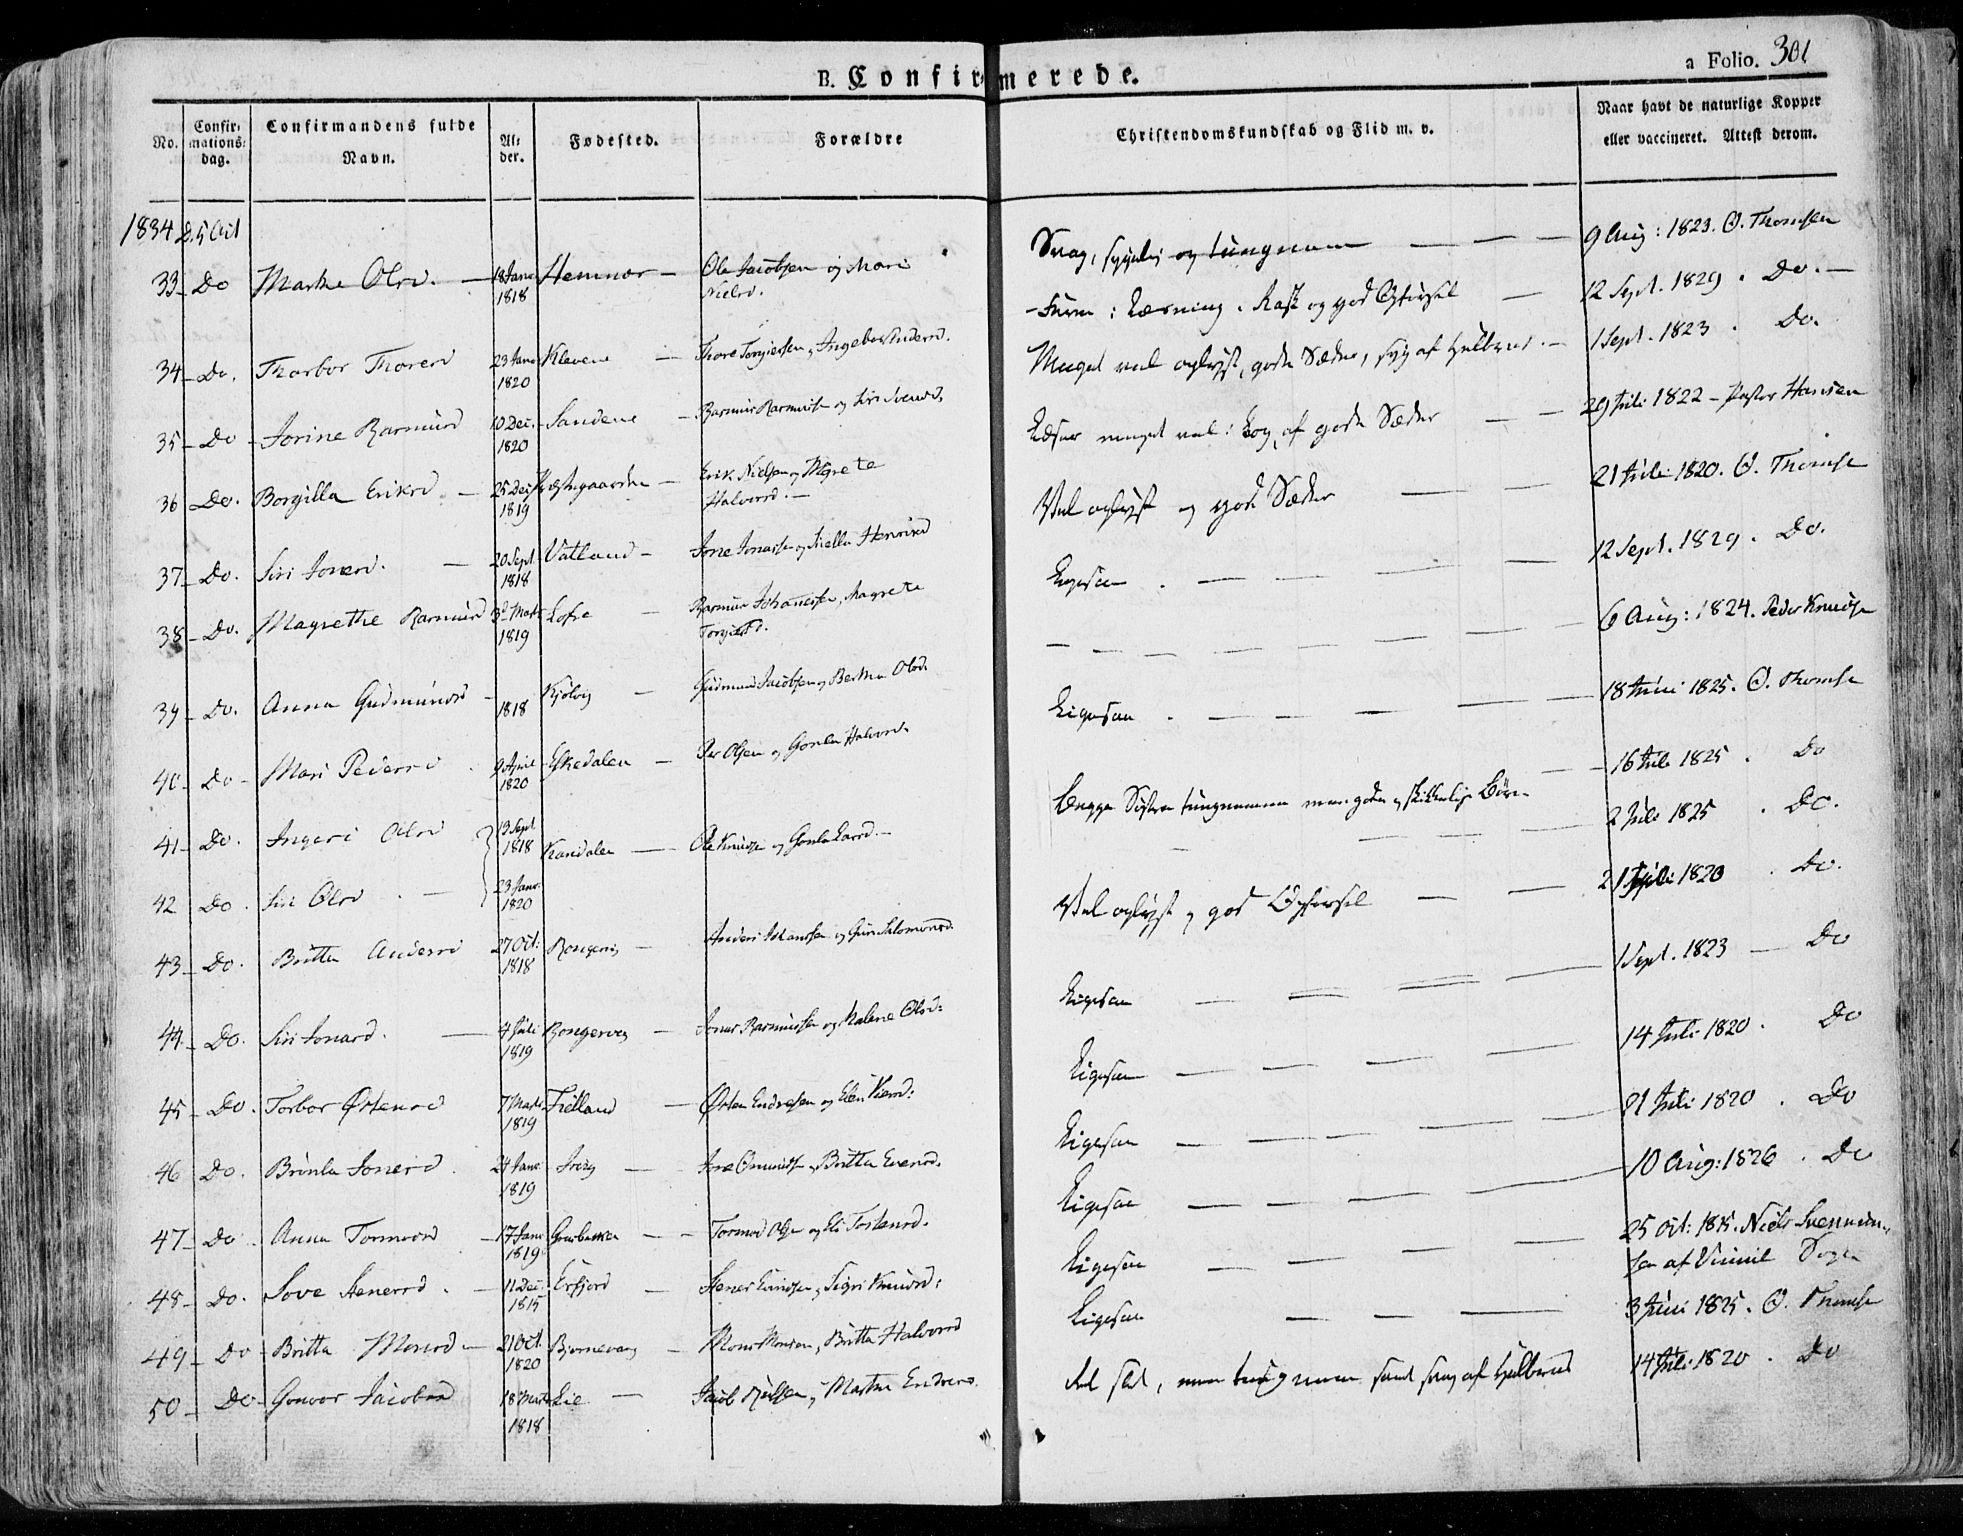 B. Confirmerede.
a Folio. 301
No.
Confir-
mations-
dag.
Confirmandens fulde
Navn.
Al-
der.
Fødested.
Forældre
Christendomskundskab og Flid m. v.
Naar havt de naturlige Kopper
eller vaccineret. Attest derom.
1834 d. 5 Oct
33 - Do Marthe Olsd. — 18 Janr 1818 Hemnær — Ole Jacobsen og Mari Nielsd. Svag, sygelig og tungnem — — — 9 Aug: 1823. O. Thomsen
34 - Do. Thorbor Thoresd 23 Janr 1820 Klevene — Thore Torgiersen, Ingebor Andersd. Læsning. Rask og god Opførsel — 12 Sept. 1829. Do. —
35 - Do - Jorine Rasmusd 10 Dec. 1820 Sandene — Rasmus Rasmusen og Siri Svensd. Meget vel oplyst, gode Sæder, svag af Helbred. — 1 Sept. 1823. Do.
36 Do. Borgilla Eriksd. — 25 Dec 1819 Prestegaarden — Erik Nielsen og Mgrete Halvorsd. — Læser meget vel: Bog, af gode Sæder — — 29 Juli 1822 - Pastor Hansen
37 - Do. Siri Jonesd. — 20 Sept 1818 Vatland — Jone Jonassen og Siella Henriksd Vel oplyst og gode Sæder — — 21 Juli 1820. O. Thomse
38 - Do. Magrethe Rasmusd 3d Marts 1819 Lofre — Rasmus Johannessen, Magrete Torgiersd. Ligesaa. — — — — 12 Sept. 1829. Do.
39 - Do. Anna Gudmundsd - 1818 Kjølvig — Gudmund Jacobsen og Bertha Olsd. — — — — — 6 Aug: 1824. Peder Knudse
40 - Do - Mari Pedersd. 9 April 1820 Eskedalen — Per Olsen og Gonla Halvorsd. Ligesaa. — — — — 18 Juni 1825. O. Thomse
41 - Do. Ingeri Olsd 13 Sept 1818 Kandalen — Ole Knudsen og Gonla Larsd. — Begge Søstre tungnemme men gode og skikkelige Børn — 16 Juli 1825. Do
42 Do. Siri Olsd. — 23 Janr. 1820 — — 2 Juli 1825. Do.
43 - Do. Britta Andersd 27 Oct: 1818 Rongevig — Anders Johansen og Guri Salomonsd. Vel oplyst og god Opførsel — — 21 Juli 1820. Do.
44 - Do. Siri Jonasd. — 4 Juli 1819 Rongevig — Jonas Rasmussen og Malene Olsd: Ligesaa — — — — 1 Sept. 1823 — Do
45 - Do. Torbor Østensd 7 Marts 1819 Fielland — Østen Endresen og Eli Iversd: Ligesaa — — — — 14 Juli 1820. Do
46 Do. Brønla Jonesd. 24 Janr 1819 — Jone Omundsen og Britta Evensd. Ligesaa — — — — 21 Juli 1820. Do
47 - Do. Anna Tormodsd — 17 Janr 1819 — Tormod Olsen og Eli Tostensd. Ligesaa — — — — 10 Aug: 1826. Do
48 - Do. Sove Stenersd. — 11 Dec: 1815 Erfjord — Stener Evindsen, Sigri Knudsd: Ligesaa — — — 25 Oct: 1815. Niels Svennung-
sen af Sogn
49 - Do - Britta Monsd — 21 Oct. 1820 Bjørnevaag — Mons Monsen, Britta Halvorsd Ligesaa — — — 3 Juni 1825. O. Thomse
50 - Do - Gonvor Jacobsd 18 Marts 1818 Lie — Jacob Nielsen, Marthe Endresd. men tungnem samt svag af Helbred 14 Juli 1820. Do